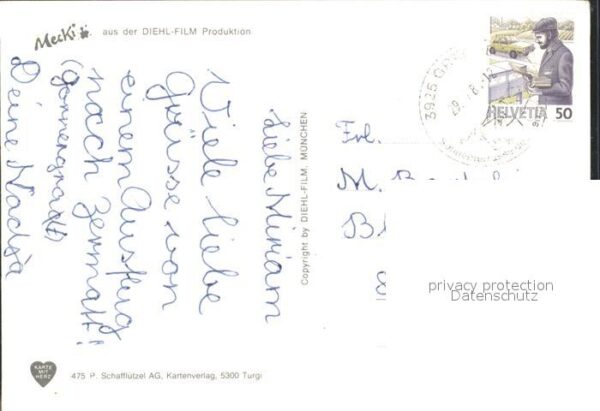 Mecki aus der DIEHL-FILM Produktion
Liebe Miriam
Viele liebe
Grüsse von
einem Ausflug
nach Zermatt!
(Gornergradt)
Deine Nadja
Copyright by DIEHL-FILM, MÜNCHEN
HELVETIA 50
3925
Frl.
M.
B
privacy protection
Datenschutz
KARTE
MIT
HERZ
475 P. Schafflützel AG, Kartenverlag, 5300 Turgi